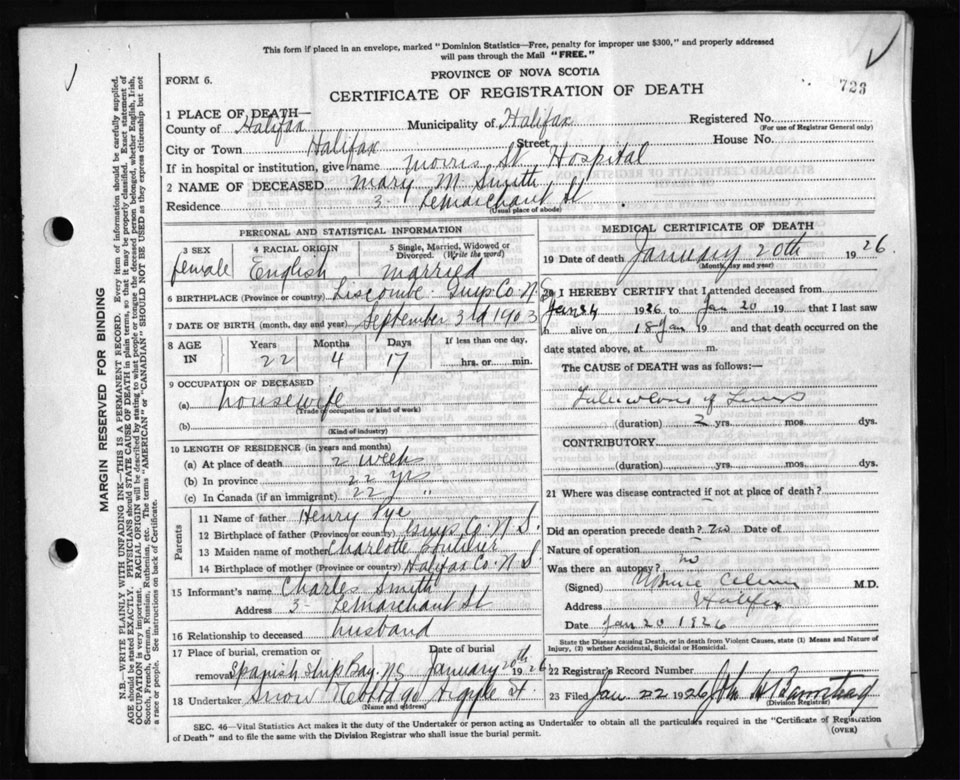 This form if placed in an envelope, marked "Dominion Statistics—Free, penalty for improper use $300," and properly addressed
will pass through the Mail "FREE."
PROVINCE OF NOVA SCOTIA
FORM 6.
CERTIFICATE OF REGISTRATION OF DEATH
723
1 PLACE OF DEATH—
County of Halifax Municipality of Halifax Registered No.
(For use of Registrar General only)
City or Town Halifax Street House No.
If in hospital or institution, give name Morris St Hospital
2 NAME OF DECEASED Mary M Smith
Residence 3 LeMarchant St
(Usual place of abode)
PERSONAL AND STATISTICAL INFORMATION
3 SEX 4 RACIAL ORIGIN 5 Single, Married, Widowed or
Divorced. (Write the word)
female English married
6 BIRTHPLACE (Province or country) Liscombe Guys Co. N.S
7 DATE OF BIRTH (month, day and year) September 3rd 1903
8 AGE IN Years Months Days If less than one day,
22 4 17 hrs. or min.
9 OCCUPATION OF DECEASED
(a) housewife
(Trade occupation or kind of work)
(b)
(Kind of industry)
10 LENGTH OF RESIDENCE (in years and months)
(a) At place of death 2 week
(b) In province 22 yrs
(c) In Canada (if an immigrant) 22 "
Parents
11 Name of father Henry Pye
12 Birthplace of father (Province or country) Guys Co. N S.
13 Maiden name of mother Charlotte Boutilier
14 Birthplace of mother (Province or country) Halifax Co. N S.
15 Informant's name Charles Smith
Address 3 LeMarchant St
16 Relationship to deceased husband
17 Place of burial, cremation or removal Date of burial
Spanish Ship Bay. NS January 20th 1926
18 Undertaker Snow Argyle St.
(Name and address)
MEDICAL CERTIFICATE OF DEATH
19 Date of death January 20th 1926
(Month, day and year)
20 I HEREBY CERTIFY that I attended deceased from
Jan 1926 to Jan 20 19 that I last saw
h alive on 18 Jan 19 and that death occurred on the
date stated above, at m.
The CAUSE of DEATH was as follows:—
Tuberculosis of Lungs
(duration) 2 yrs. mos. dys.
CONTRIBUTORY
(duration) yrs. mos. dys.
21 Where was disease contracted if not at place of death?
Did an operation precede death? No Date of
Nature of operation
Was there an autopsy? no
(Signed) M.D.
Address Halifax
Date Jan 20 1926
State the Disease causing Death, or in death from Violent Causes, state (1) Means and Nature of
Injury, (2) whether Accidental, Suicidal or Homicidal.
22 Registrar's Record Number
23 Filed Jan 22 1926 John
(Division Registrar)
SEC. 46—Vital Statistics Act makes it the duty of the Undertaker or person acting as Undertaker to obtain all the particulars required in the "Certificate of Registration
of Death" and to file the same with the Division Registrar who shall issue the burial permit.
(OVER)
MARGIN RESERVED FOR BINDING
N.B.—WRITE PLAINLY WITH UNFADING INK—THIS IS A PERMANENT RECORD. Every item of information should be carefully supplied.
AGE should be stated EXACTLY. PHYSICIANS should STATE CAUSE OF DEATH in plain terms, so that it may be properly classified. Exact statement of
OCCUPATION is very important. RACIAL ORIGIN will be described by stating to what people or tongue the deceased person belonged, whether English, Irish,
Scotch, French, German, Russian, Ruthenian, etc. The terms "AMERICAN" or "CANADIAN" SHOULD NOT BE USED as they express citizenship but not
a race or people. See instructions on back of Certificate.